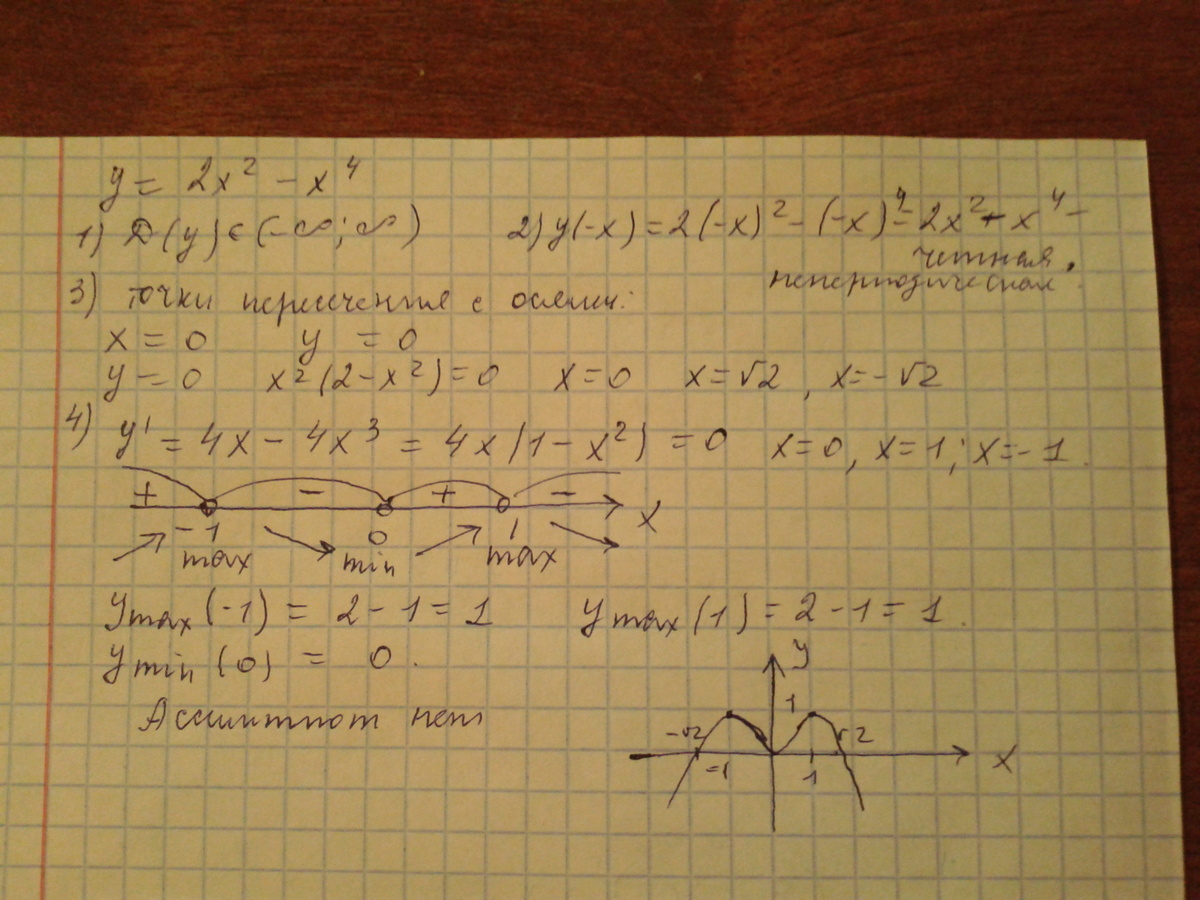 y = 2x² - x⁴
1) D(y) ∈ (-∞; ∞) 2) y(-x) = 2(-x)² - (-x)⁴ = 2x² - x⁴ -
четная.
непериодическая.
3) точки пересечения с осями:
x = 0 y = 0
y = 0 x²(2-x²) = 0 x = 0 x = √2, x = -√2
4) y' = 4x - 4x³ = 4x(1-x²) = 0 x = 0, x = 1; x = -1.
+ - + - x
-1 0 1
max min max
y max(-1) = 2 - 1 = 1 y max(1) = 2 - 1 = 1.
y min(0) = 0.
Ассимптот нет
y
1
-√2 √2
-1 1 x